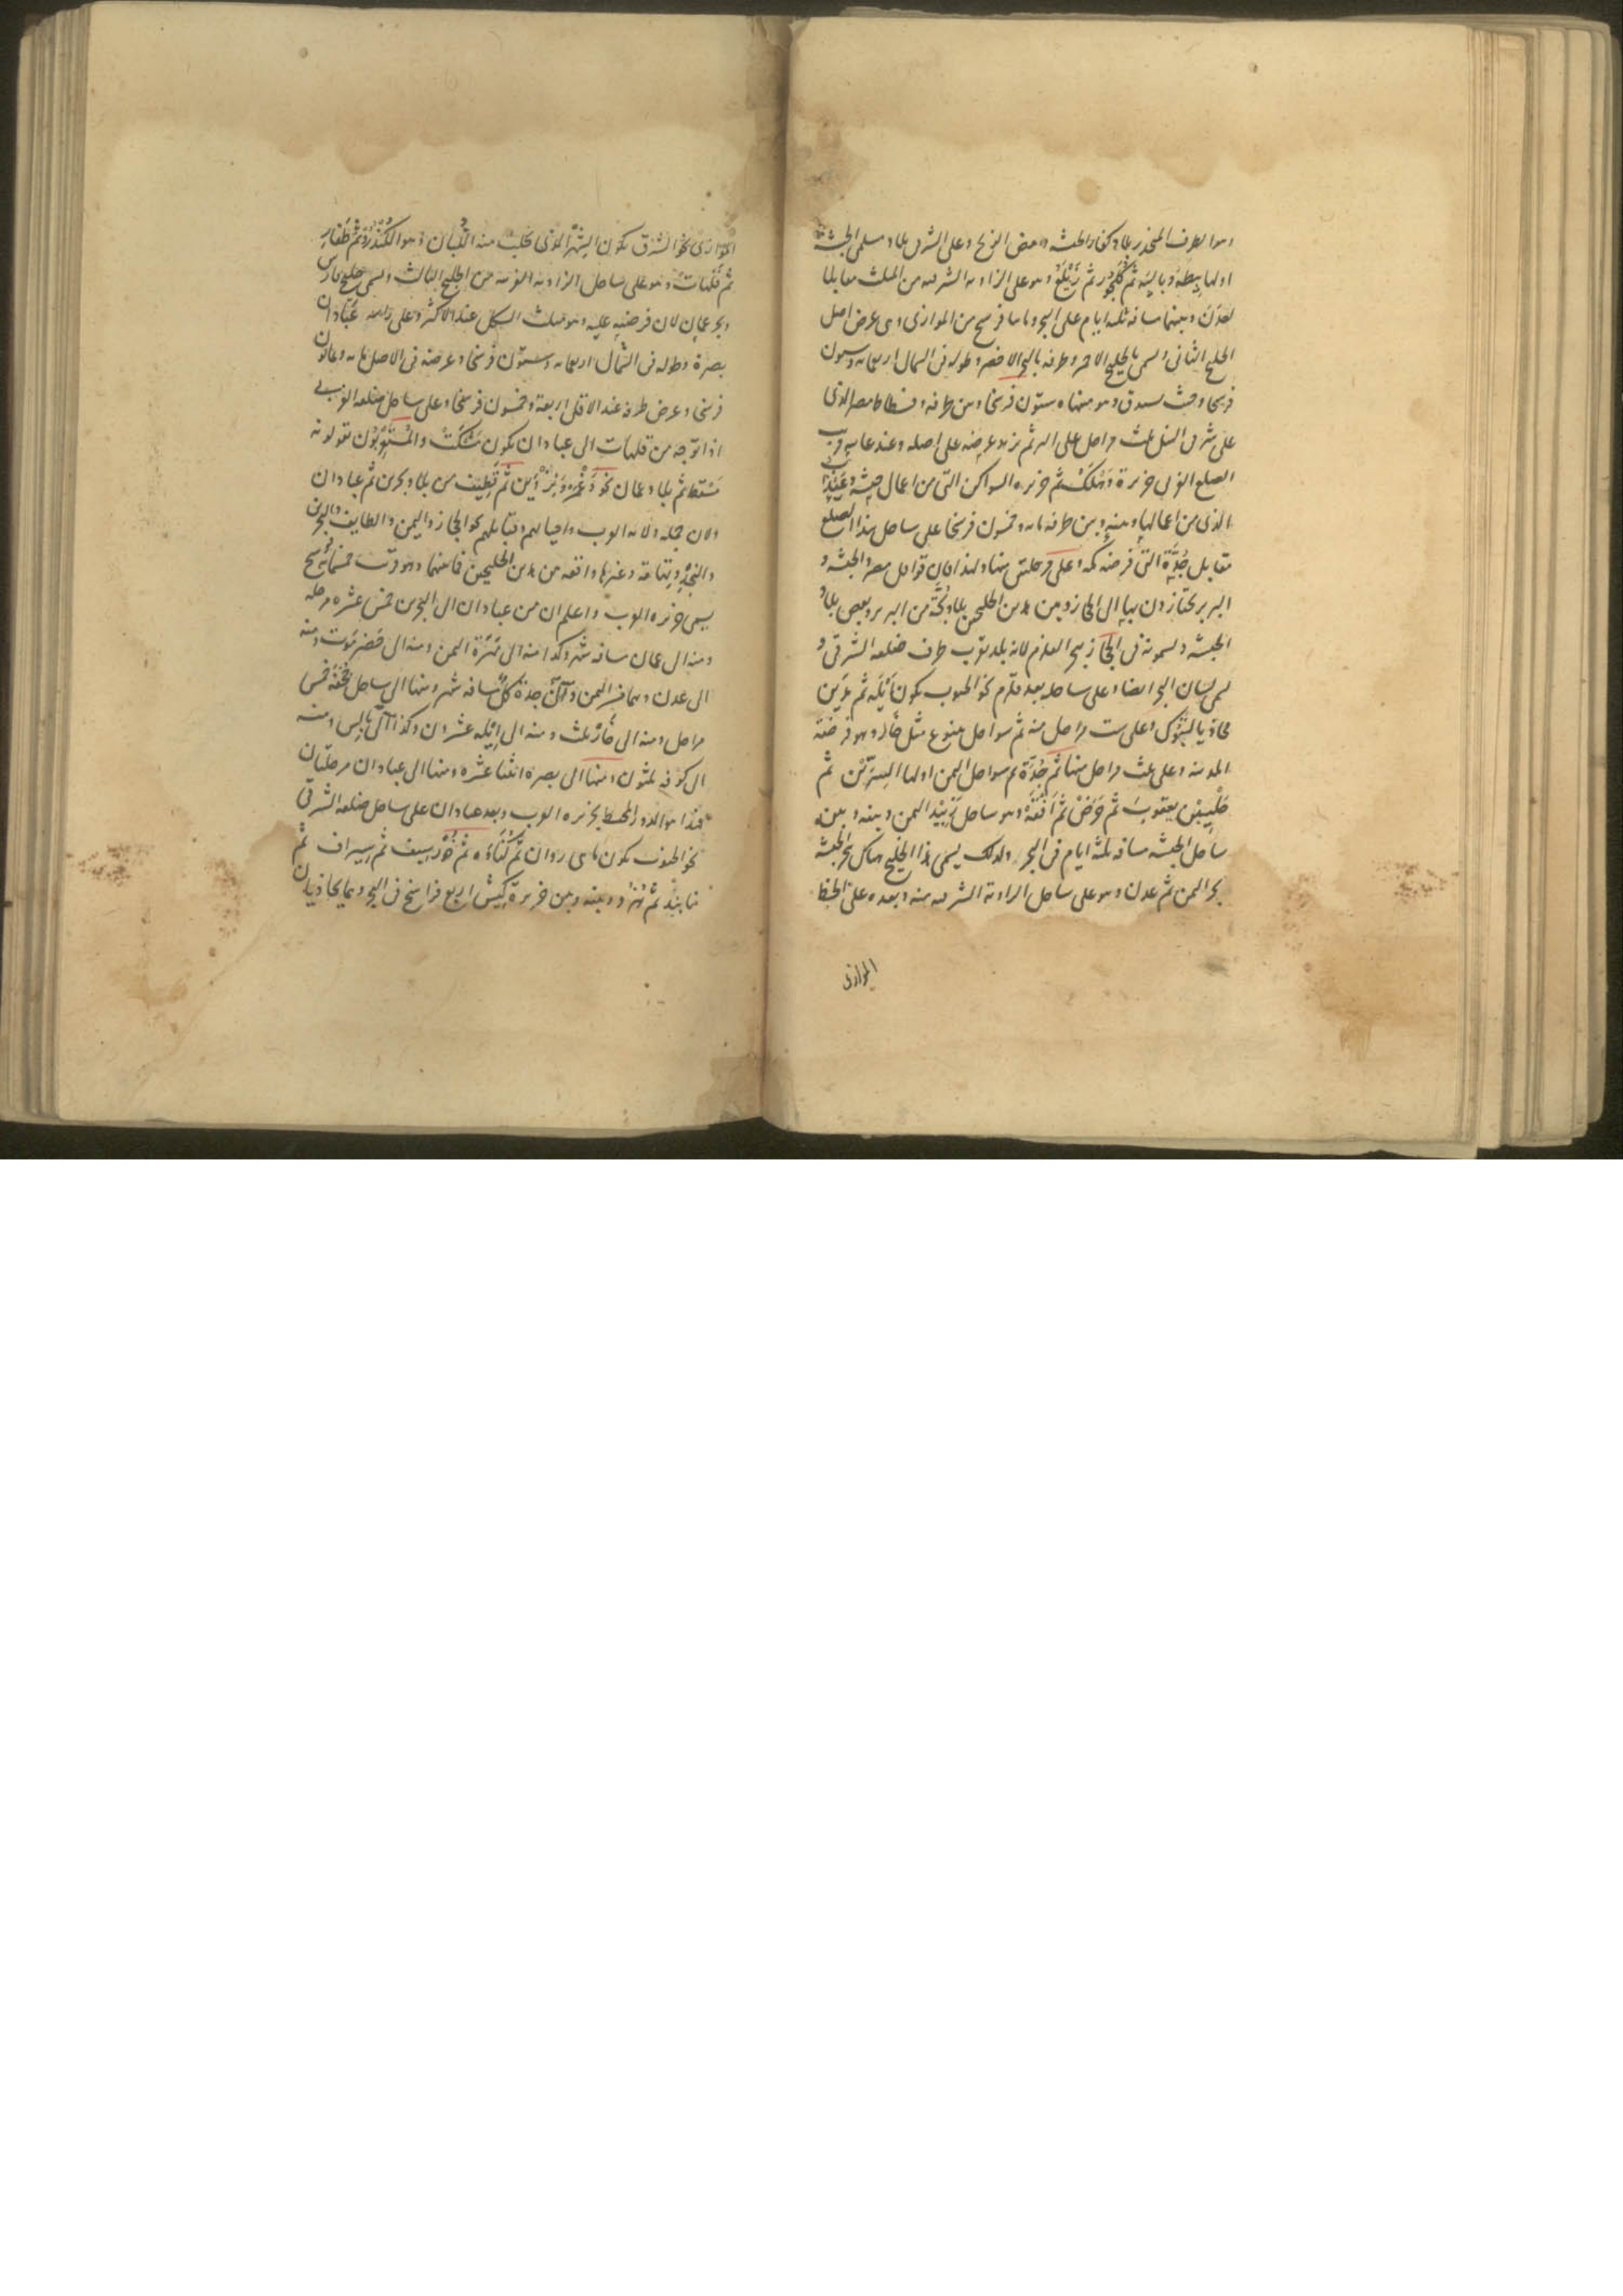 وهو الطرف المنحدر بلاد كفار الحبشه وبعض الزنج وعلى الشرقى بلاد مسلمى الحبشة
اولها بيطه وباليه ثم كلجور ثم زيلع وهو على الزاوية الشرقيه من المثلث مقابلا
لعدن وبينهما مسافة ثلثه ايام على البحر وماسا فرسخ من الموازى وهى عرض اصل
الخليج الثانى ويسمى بالخليج الاحمر وطرفه بالبحر الاخضر وطوله فى الشمال اربعمائه وستون
فرسخا وحيث يسدق وهو منتهاه ستون فرسخا وبين طرفه وفسطاط مصر الذى
على شرقى النيل ثلث مراحل على البر ثم يزيد عرضه على اصله وعند غايه قريب
الضلع الغربى جزيرة دهلك ثم جزيره السواكن التى من اعمال حبشه وعيذاب
الذى من اعمالها وبينه وبين طرفه مائه وخمسون فرسخا على ساحل هذا الضلع
مقابل جدة التى فرضه مكه وعلى مرحلتين منها ولهذا فان قوافل مصر والحبشه و
البربر يجتازون بها الى الحجاز وبين هذين الخليجين بلاد بجة من البربر وبعض بلاد
الحبشه ويسمونه فى الحجاز بحر القلزم لانه بلد بقرب طرف ضلعه الشرقى و
لمى لسان البحر ايضا وعلى ساحله بعد قلزم نحو الجنوب يكون ايله ثم مدين
محاذيا لتبوك وعلى ست مراحل منه ثم سواحل ينبوع مثل جار وهو فرضة
المدينه وعلى ثلث مراحل منها ثم جدة ثم سواحل اليمن اولها السرين ثم
حلى بن يعقوب ثم حرض ثم افقة وهو ساحل زبيد اليمن وبينه وبين
ساحل الحبشه مسافه ثلثه ايام فى البحر ولذلك يسمى هذا الخليج هناك بحر الحبشه
بحر اليمن ثم عدن وهو على ساحل الزاوية الشرقيه منه وبعده على الخط
الموازى
الموازى نحو الشرق يكون الشحر الذى يجلب منه اللبان وهو الكندر ثم ظفار
ثم قلهات وهو على ساحل الزاويه الغربيه من الخليج الثالث ويسمى خليج فارس
وبحر عمان لان فرضته عليه وهو مثلث الشكل عند الاكثر وعلى راسه عبادان
بصرة وطوله فى الشمال اربعمائه وستون فرسخا وعرضه فى الاصل مائه وثمانون
فرسخا وعرض طرفه عند الاقل اربعة وخمسون فرسخا وعلى ساحل ضلعه الغربى
اذا توجه من قلهات الى عبادان يكون مسكت والمستعربون يقولونه
مسقط ثم بلاد عمان نحو دغمر وبزوين ثم قطيف من بلاد بحرين ثم عبادان
ولان جمله ولايه العرب واحيائهم وقبايلهم كالحجاز واليمن والطايف والبحرين
والنجد وتهامة وغيرها واقعه من هذين الخليجين فما بينهما وهو قريب خمسمائة فرسخ
يسمى جزيره العرب واعلم ان من عبادان الى البحرين خمس عشره مرحله
ومنه الى عمان مسافه شهر وكذا منه الى مهرة اليمن ومنه الى حضرموت ومنه
الى عدن وهما من اليمن وآل جدة كل مسافه شهر ومنها الى ساحل جحفة خمس
مراحل ومنه الى جار ثلث ومنه الى ايله عشرون وكذا الى بالس ومنه
الى كوفه ثلثون ومنها الى بصرة اثنتا عشره ومنها الى عبادان مرحلتان
فهذا هو الدور المحيط بجزيره العرب وبعد عبادان على ساحل ضلعه الشرقى
نحو الجنوب يكون ماهى روبان ثم كناوه ثم خورسيف ثم سيراف ثم
نابند ثم هزو وبينه وبين جزيرة كيش اربع فراسخ فى البحر وهما يحاذيان